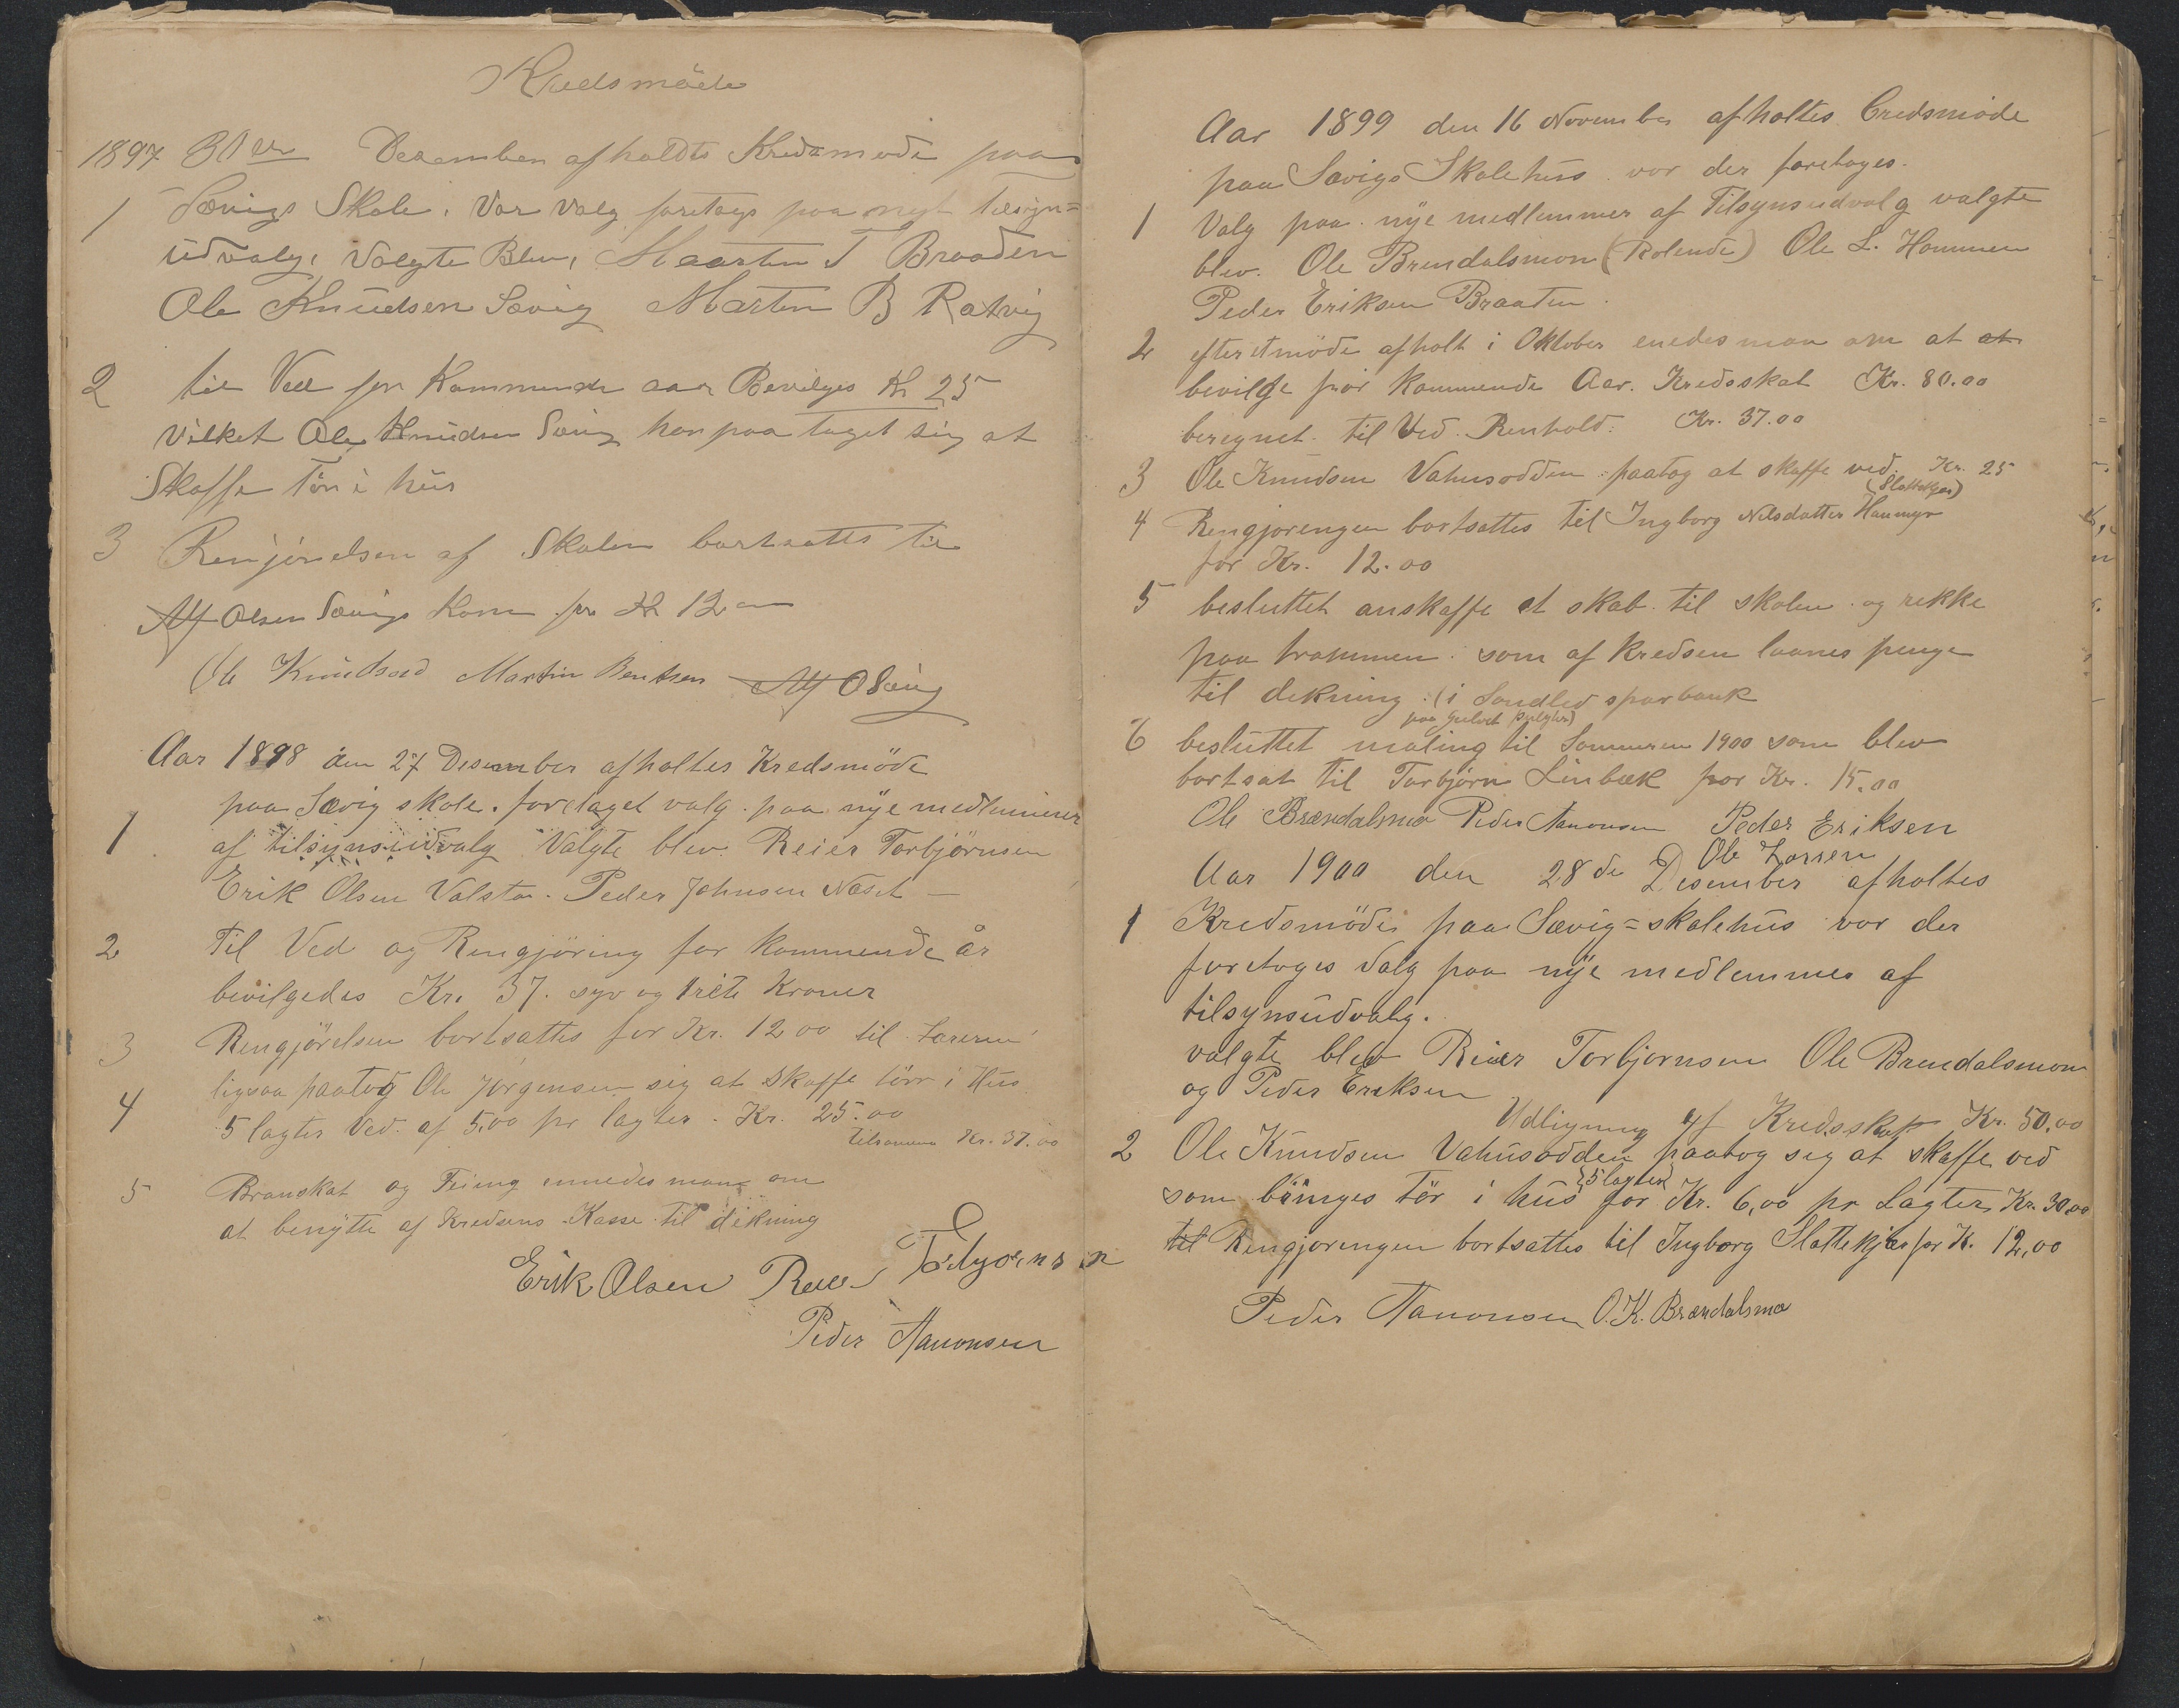 Kredsmöde
1897 30te Desember afholdts Kredsmøde paa
1 Sævigs Skole. Var Valg foretags paa nyt tilsyn=
udvalg, Valgte Blev, Maarten T Braaden
Ole Knudsen Sævig Marten B Røtvig
2 til Ved for Kommende aar Bevilges Kr 25
vilket Ole Knudsen Sævig har paa taget sig at
Skaffe tör i hus
3 Renjörelsen af Skolen bortsattes til
Alf Olsen Sævigs Kone for Kr 12
Ole Knudsen Martin Bentsen Alf O Sævig
Aar 1898 den 27 Desember afholtes Kredsmöde
paa Sævig skole. foretaget valg paa nye medlemmer
1 af tilsynsudvalg Valgte blev Reier Torbjörnsen
Erik Olsen Valstø. Peder Johnsen Næset —
2 Til Ved og Rengjöring for kommende år
bevilgedes Kr. 37. syv og trite Kroner
3 Rengjörelsen bortsattes for Kr. 12 00 til Læreren
4 ligsaa paatog Ole Jörgensen sig at skaffe törr i Hus
5 lagter Ved. af 5,00 pr lagter. Kr. 25.00
tilsammen Kr. 37.00
5 Branskat og Feiing ennedes man om
at benytte af Kredsens Kasse til dekning
Erik Olsen Reier Torbjørnsen
Peder Aanonsen
Aar 1899 den 16 November afholtes Credsmöde
paa Sævigs Skolehus vor der foretages.
1 Valg paa nye medlemmer af Tilsynsudvalg valgte
blev. Ole Brendalsmon (Rolende) Ole L. Hommen
Peder Eriksen Braaten.
2 efter et möde afholt i Oktober enedes man om at at
bevilge för kommende Aar. Kredsskat Kr. 80.00
beregnet til Ved. Renhold. Kr. 37.00
3 Ole Knudsen Vahusodden paatog at skaffe ved. Kr. 25
(Slottekjær)
4 Rengjoringen bortsattes til Ingborg Nilsdatter Haumyr
for Kr. 12.00
5 besluttet anskaffe et skab til skolen og rekke
paa trammen. som af kredsen laanes penge
til dekning (i Søndlev sparbank
paa gulvet
6 besluttet maling til Sommeren 1900 som blev
bortsat til Torbjörn Linbæk for Kr. 15.00
Ole Brændalsmo Peder Aanonsen Peder Eriksen
Ole Larsen
Aar 1900 den 28de Desember afholtes
1 Kredsmöde paa Sævig=skolehus vor der
foretoges Valg paa nye medlemmer af
tilsynsudvalg.
valgte blev Reier Torbjornsen Ole Brendalsmon
og Peder Eriksen
Udligning af Kredsskat Kr. 50.00
2 Ole Knudsen Vahusodden paatog sig at skaffe ved
{5 lagter}
som bringes tör i hus for Kr. 6,00 pr Lagter Kr. 30.00
til Rengjoringen bortsattes til Ingborg Slottekjær for K. 12,00
Peder Aanonsen O.K. Brændalsmo